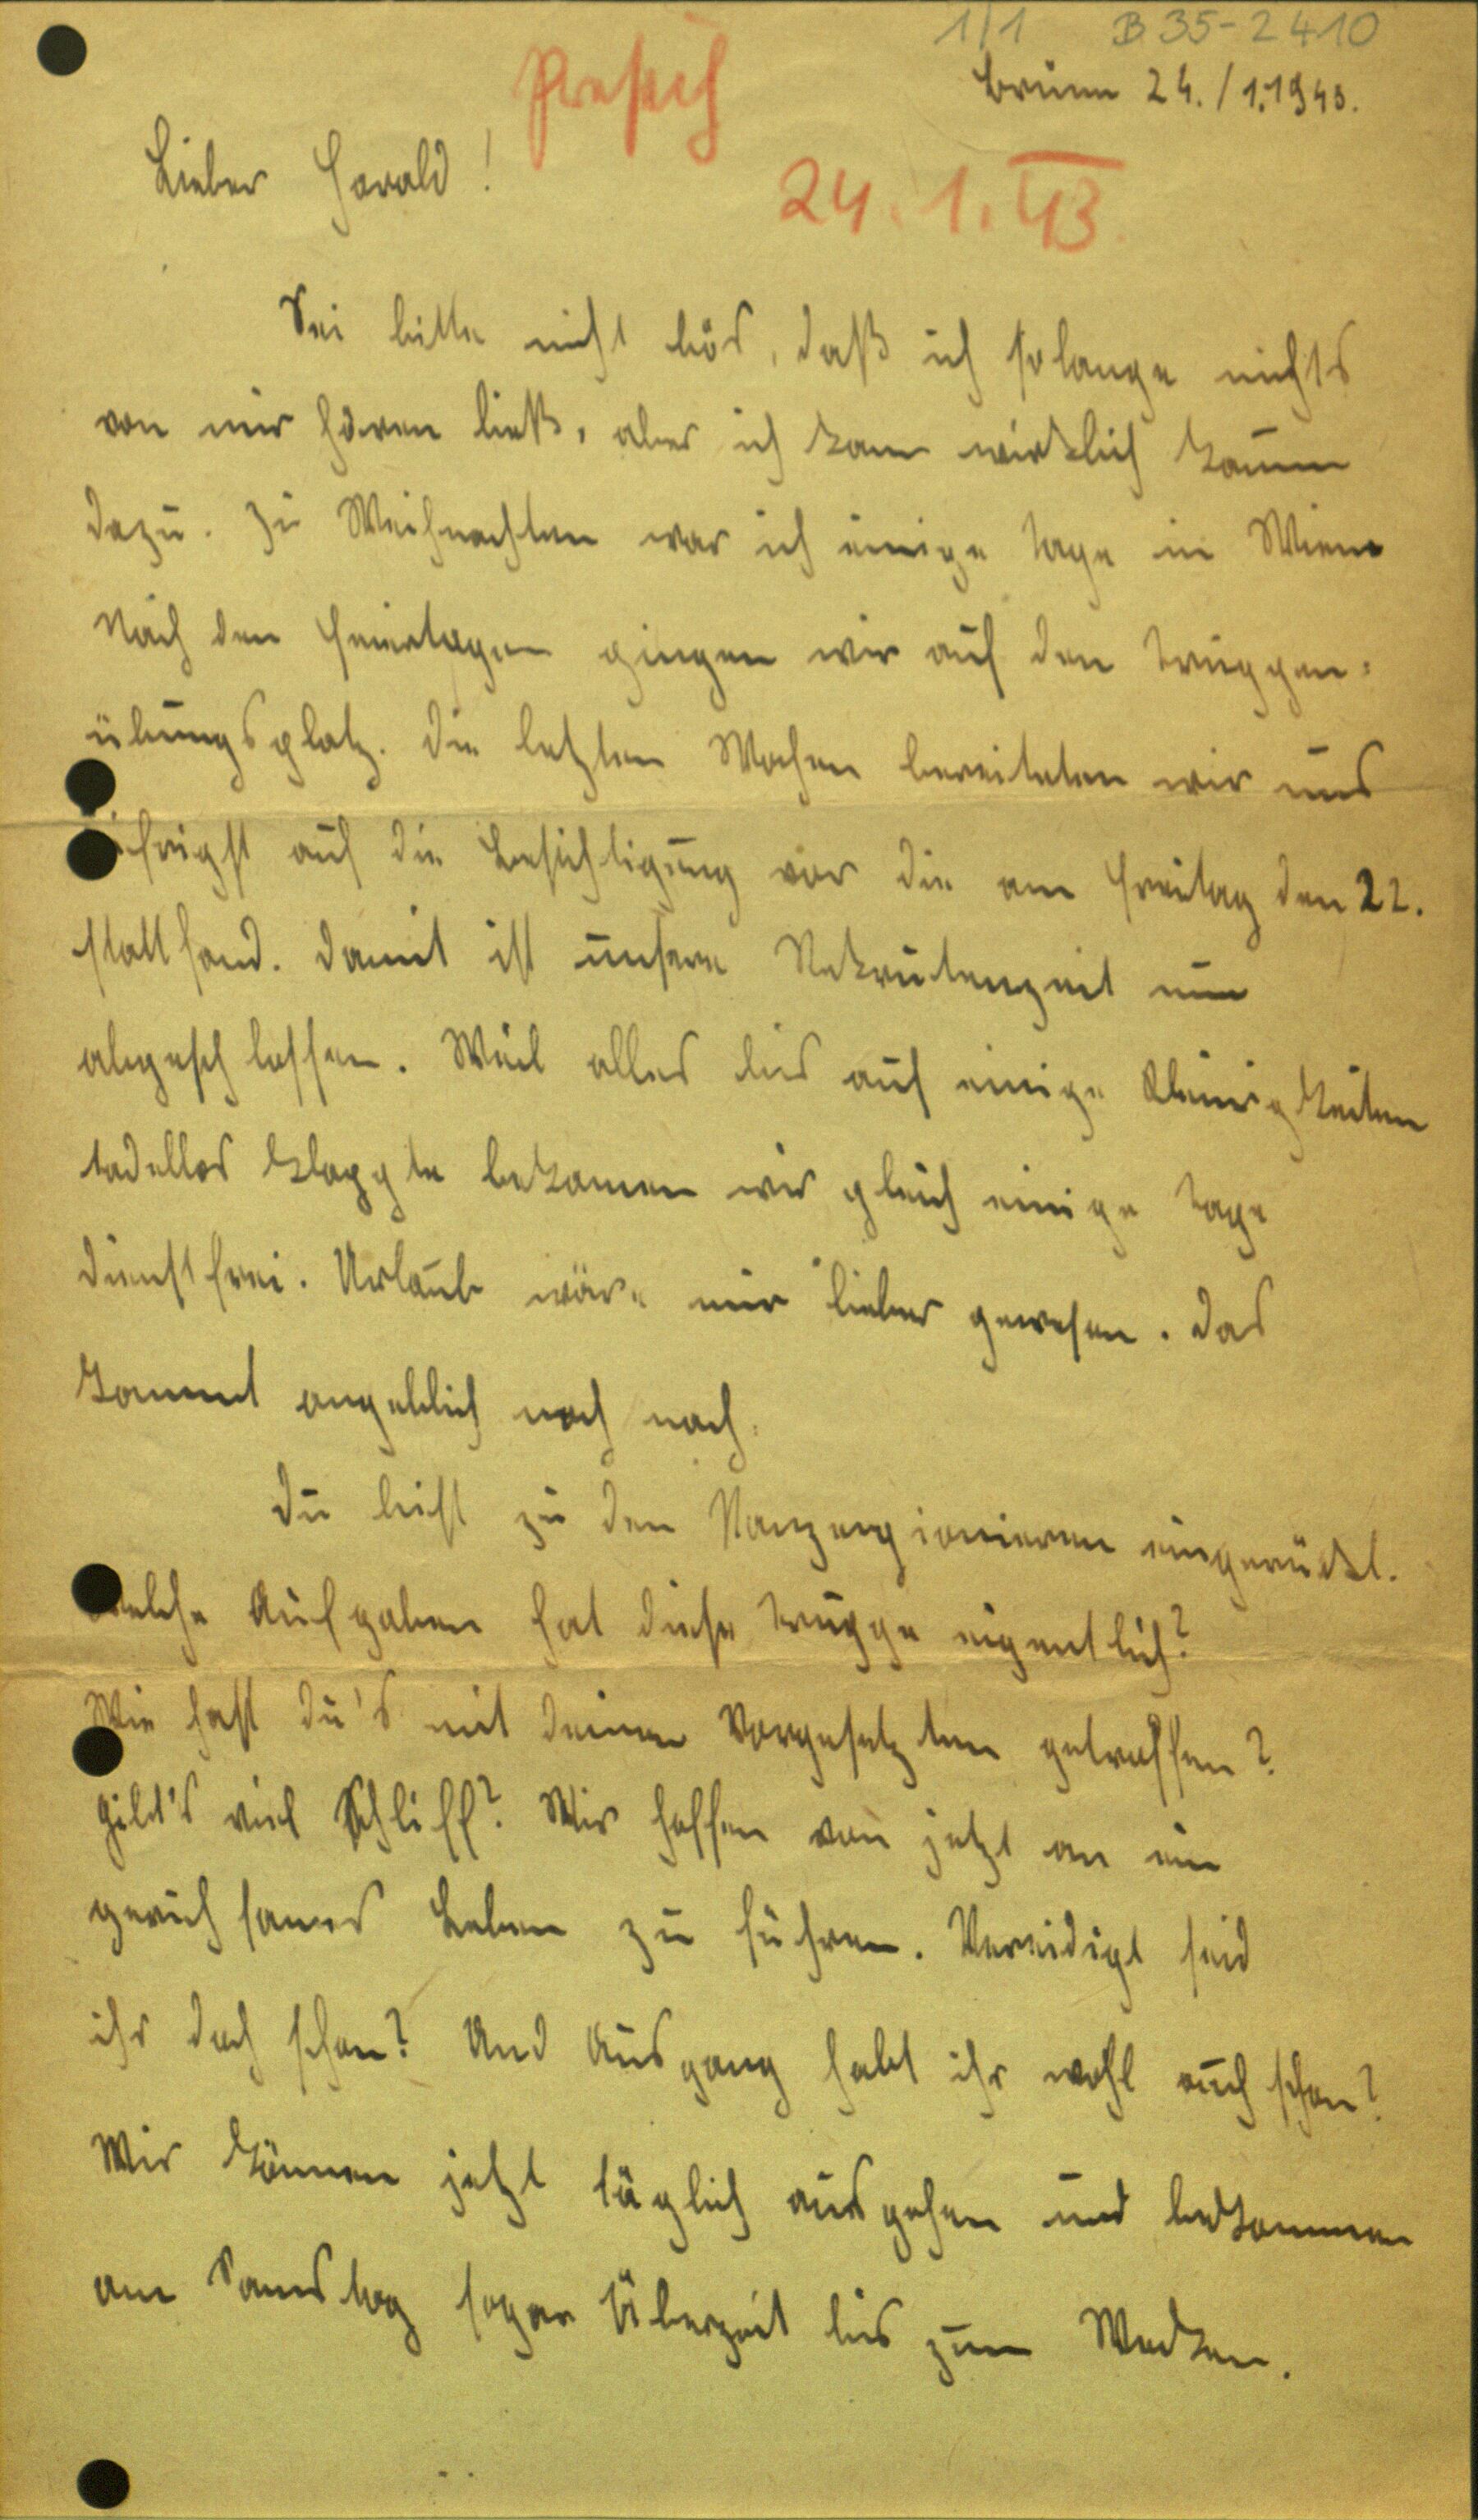 1/1 B 35-2410
Brünn 24./1.1943.
24. 1. 43.
Lieber Harald!
Sei bitte nicht bös, daß ich solange nichts
von mir hören ließ, aber ich kam wirklich kaum
dazu. Zu Weihnachten war ich einige Tage in Wien.
Nach den Feiertagen gingen wir auf den Truppen-
übungsplatz. Die letzten Wochen bereiteten wir uns
eifrigst auf die Besichtigung vor die am Freitag den 22.
stattfand. Damit ist unsere Rekrutenzeit nun
abgeschlossen. Weil alles bis auf einige Kleinigkeiten
tadellos klappte bekamen wir gleich einige Tage
dienstfrei. Urlaub wäre mir lieber gewesen. Das
kommt angeblich noch nach.
Du bist zu den Panzerpionieren eingerückt.
Welche Aufgaben hat diese Truppe eigentlich?
Wie hast du's mit deinen Vorgesetzten getroffen?
Gibt's viel Schliff? Wir hoffen von jetzt an ein
geruhsames Leben zu führen. Vereidigt seid
ihr doch schon? Und Ausgang habt ihr wohl auch schon?
Wir können jetzt täglich ausgehen und bekommen
am Samstag sogar Überzeit bis zum Wecken.